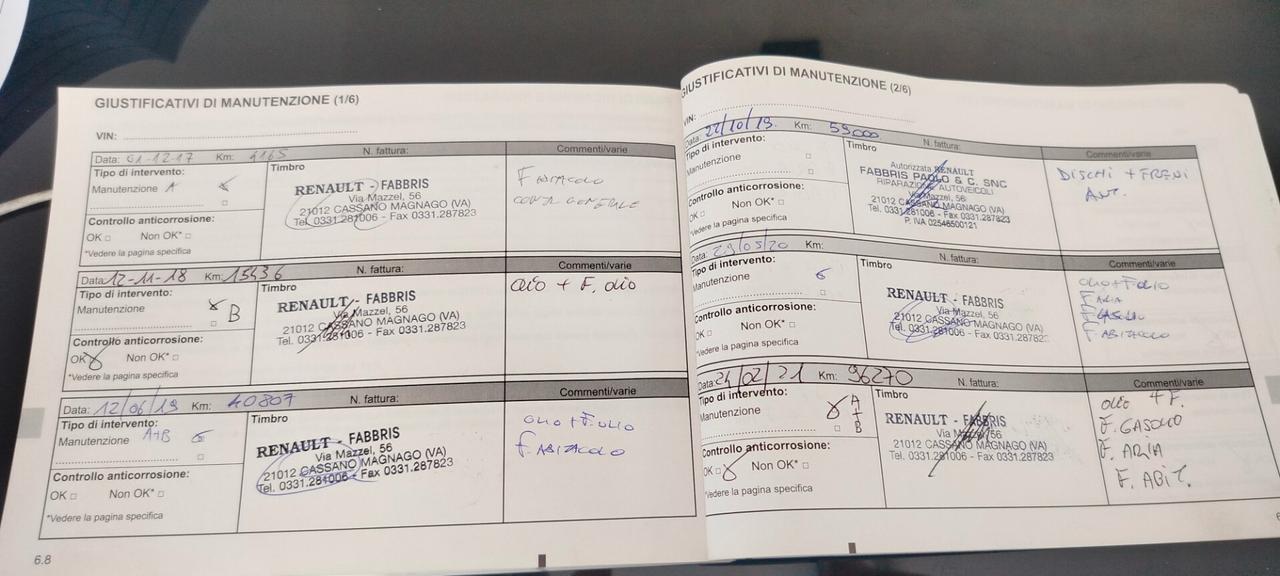 GIUSTIFICATIVI DI MANUTENZIONE (1/6)
VIN:
Data: 01-12-17 Km: 4165 N. fattura: Commenti/varie
Tipo di intervento:
Manutenzione A
Controllo anticorrosione:
OK □ Non OK* □
*Vedere la pagina specifica
Timbro
RENAULT - FABBRIS
Via Mazzel, 56
21012 CASSANO MAGNAGO (VA)
Tel. 0331.281006 - Fax 0331.287823
F ABITACOLO
GENERALE
Data: 12-11-18 Km: 15436 N. fattura: Commenti/varie
Tipo di intervento:
Manutenzione
B
Controllo anticorrosione:
OK Non OK* □
*Vedere la pagina specifica
Timbro
RENAULT - FABBRIS
Via Mazzel, 56
21012 CASSANO MAGNAGO (VA)
Tel. 0331.281006 - Fax 0331.287823
OLIO + F. OLIO
Data: 12/06/19 Km: 40807 N. fattura: Commenti/varie
Tipo di intervento:
Manutenzione A+B
Controllo anticorrosione:
OK □ Non OK* □
*Vedere la pagina specifica
Timbro
RENAULT - FABBRIS
Via Mazzel, 56
21012 CASSANO MAGNAGO (VA)
Tel. 0331.281006 - Fax 0331.287823
OLIO + F.OLIO
F. ABITACOLO
6.8
GIUSTIFICATIVI DI MANUTENZIONE (2/6)
VIN:
Data: 22/10/19 Km: 55000 N. fattura: Commenti/varie
Tipo di intervento:
Manutenzione □
Controllo anticorrosione:
OK □ Non OK* □
*Vedere la pagina specifica
Timbro
Autorizzata RENAULT
FABBRIS PAOLO & C. SNC
RIPARAZIONE AUTOVEICOLI
Via Mazzel, 56
21012 CASSANO MAGNAGO (VA)
Tel. 0331.281006 - Fax 0331.287823
P. IVA 02546500121
DISCHI + FRENI
ANT.
Data: 29/05/20 Km: N. fattura: Commenti/varie
Tipo di intervento:
Manutenzione
Controllo anticorrosione:
OK □ Non OK* □
*Vedere la pagina specifica
Timbro
RENAULT - FABBRIS
Via Mazzel, 56
21012 CASSANO MAGNAGO (VA)
Tel. 0331.281006 - Fax 0331.28782
OLIO + F.OLIO
F ARIA
F. ABITACOLO
Data: 24/02/21 Km: 96270 N. fattura: Commenti/varie
Tipo di intervento:
Manutenzione A + B
Controllo anticorrosione:
OK □ Non OK* □
*Vedere la pagina specifica
Timbro
RENAULT - FABBRIS
Via Mazzel, 56
21012 CASSANO MAGNAGO (VA)
Tel. 0331.281006 - Fax 0331.287823
OLIO + F.
F. GASOLIO
F. ARIA
F. ABIT.